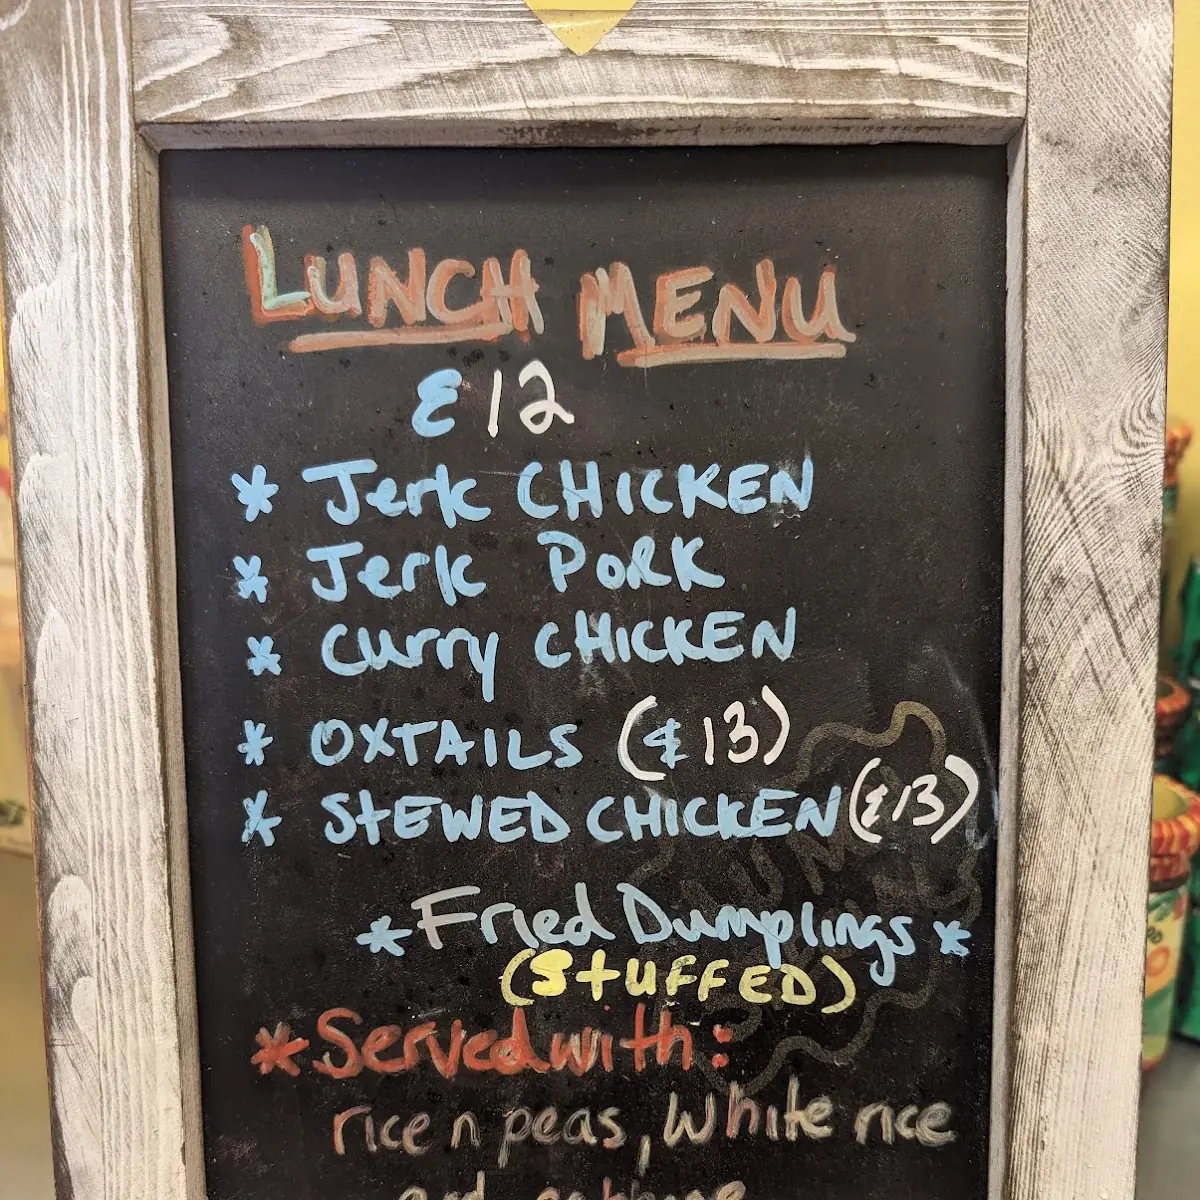 LUNCH MENU
£12
* Jerk CHICKEN
* Jerk PORK
* Curry CHICKEN
* OXTAILS (£13)
* STEWED CHICKEN (£13)
* Fried Dumplings *
(STUFFED)
* Served with:
rice n peas, White rice